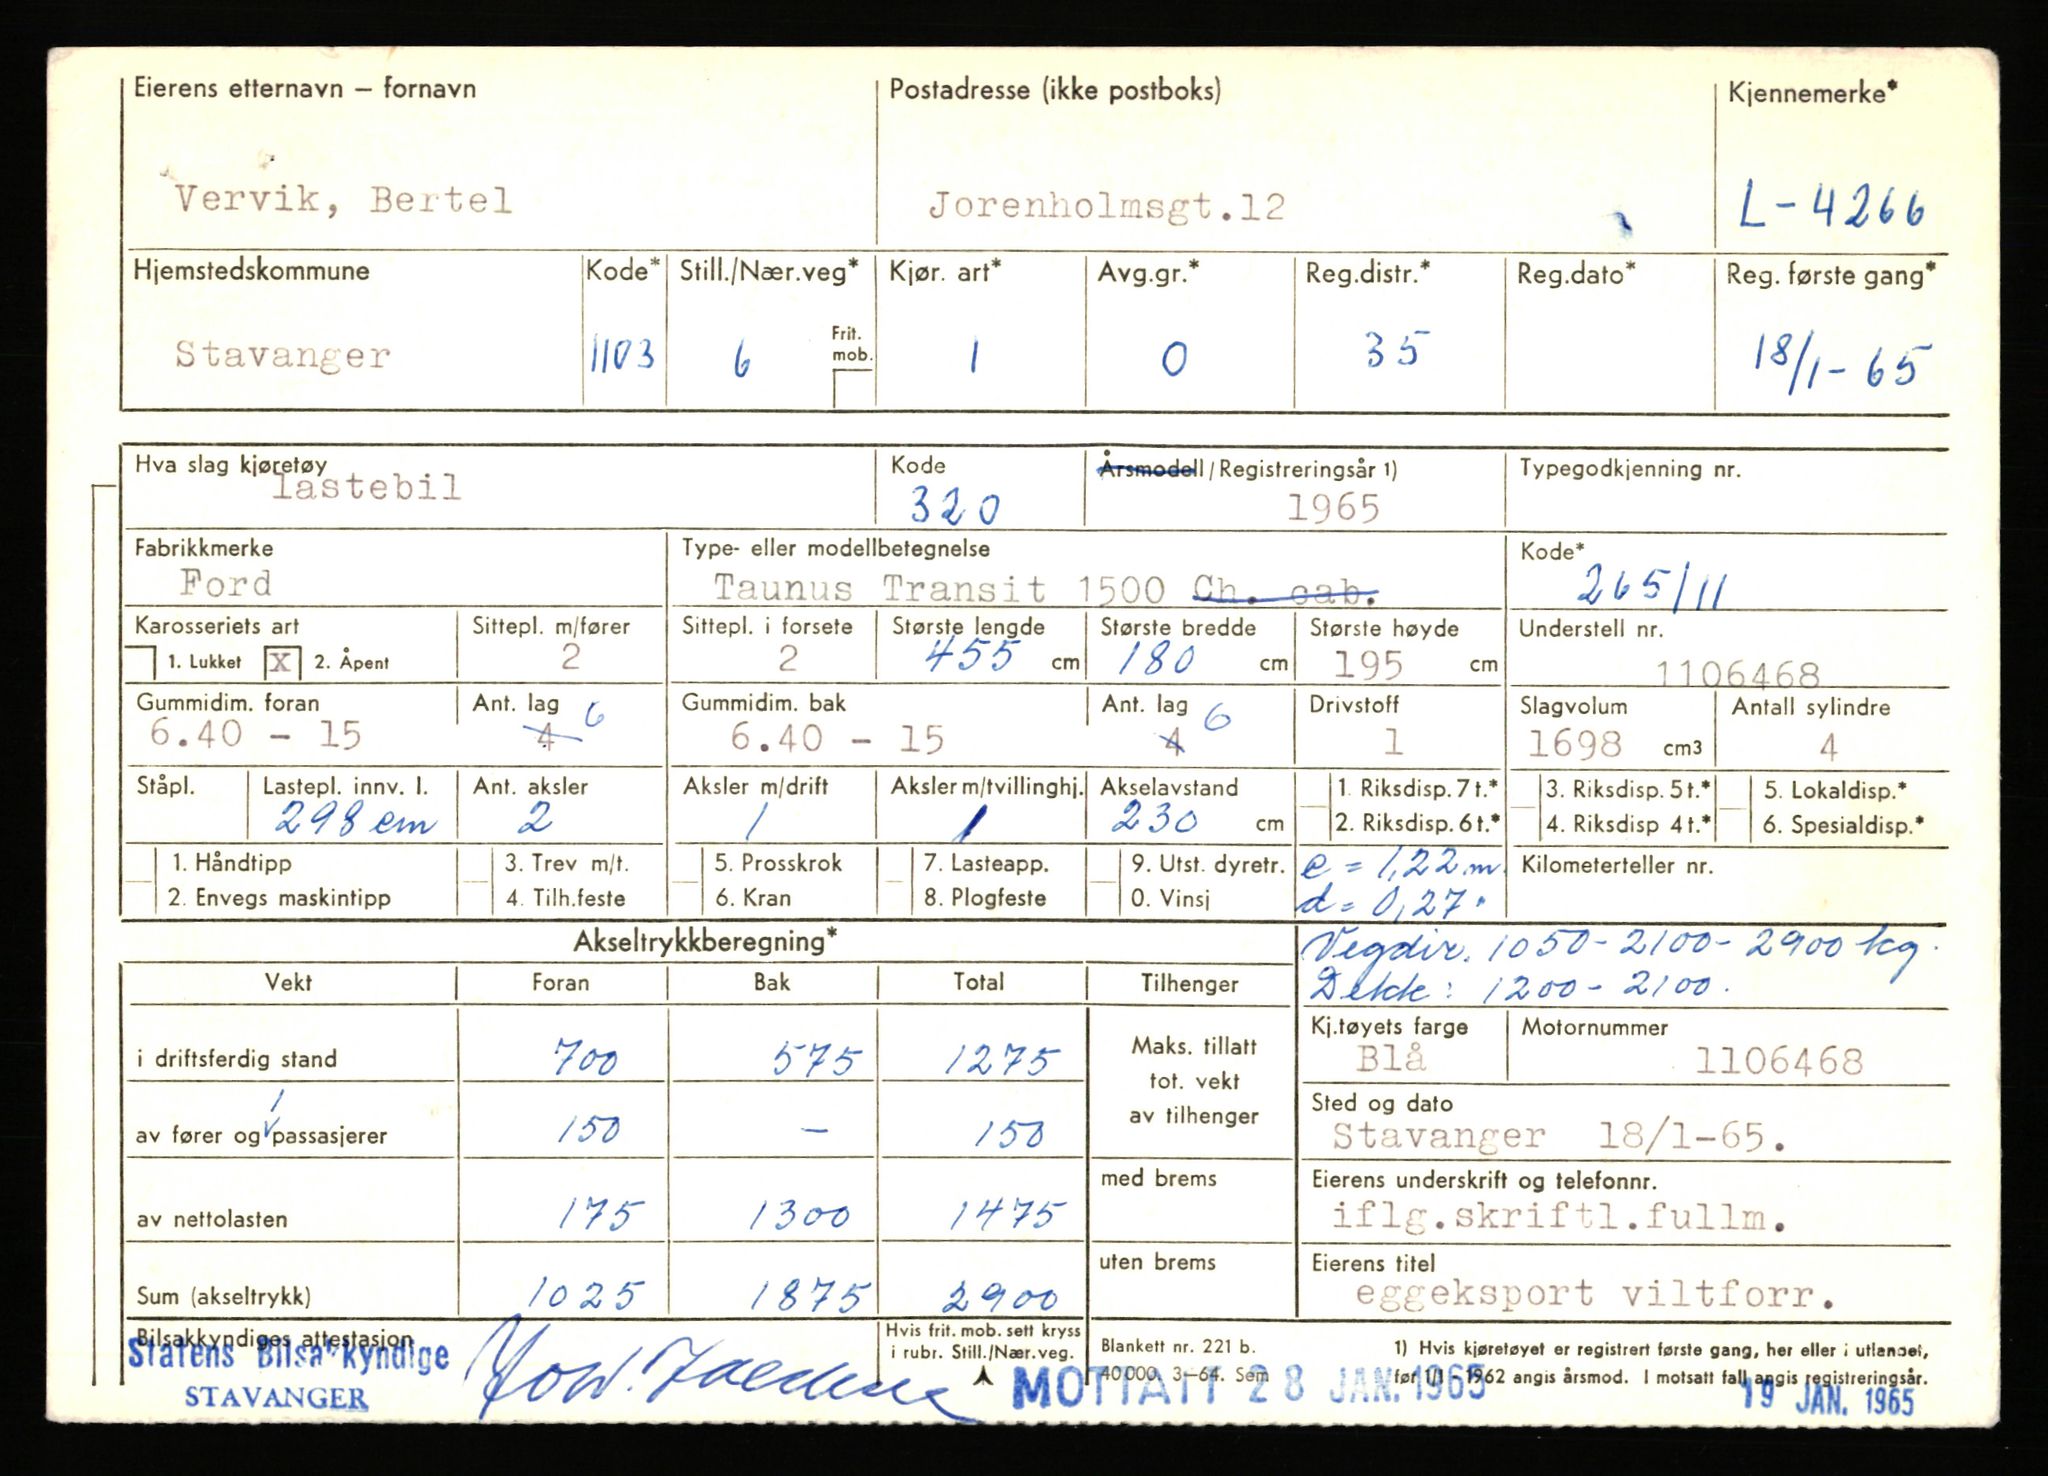 Eierens etternavn – fornavn Postadresse (ikke postboks) Kjennemerke*
Vervik, Bertel Jorenholmsgt.12 L-4266
Hjemstedskommune Kode* Still./Nær.veg* Kjør. art* Avg.gr.* Reg.distr.* Reg.dato* Reg. første gang*
Stavanger 1103 6 Frit. mob. 1 0 35 18/1-65
Hva slag kjøretøy Kode Årsmodell/Registreringsår 1) Typegodkjenning nr.
lastebil 320 1965
Fabrikkmerke Type- eller modellbetegnelse Kode*
Ford Taunus Transit 1500 Ch. cab. 265/11
Karosseriets art Sittepl. m/fører Sittepl. i forsete Største lengde Største bredde Største høyde Understell nr.
1. Lukket X 2. Åpent 2 2 455 cm 180 cm 195 cm 1106468
Gummidim. foran Ant. lag Gummidim. bak Ant. lag Drivstoff Slagvolum Antall sylindre
6.40 - 15 4 6 6.40 - 15 4 6 1 1698 cm3 4
Ståpl. Lastepl. innv. l. Ant. aksler Aksler m/drift Aksler m/tvillinghj. Akselavstand 1. Riksdisp. 7 t.* 3. Riksdisp. 5 t.* 5. Lokaldisp.*
298 cm 2 1 1 230 cm 2. Riksdisp. 6 t.* 4. Riksdisp 4 t.* 6. Spesialdisp.*
1. Håndtipp 3. Trev m/t. 5. Prosskrok 7. Lasteapp. 9. Utst. dyretr. e = 1,22 m. Kilometerteller nr.
2. Envegs maskintipp 4. Tilh.feste 6. Kran 8. Plogfeste 0. Vinsj d = 0,27 "
Akseltrykkberegning* Vegdir. 1050-2100-2900 kg.
Vekt Foran Bak Total Tilhenger Dekk: 1200-2100.
Kj.tøyets farge Motornummer
i driftsferdig stand 700 575 1275 Maks. tillatt tot. vekt av tilhenger Blå 1106468
Sted og dato
av fører og 1 passasjerer 150 – 150 Stavanger 18/1-65.
med brems Eierens underskrift og telefonnr.
av nettolasten 175 1300 1475 iflg.skriftl.fullm.
uten brems Eierens titel
Sum (akseltrykk) 1025 1875 2900 eggeksport viltforr.
Bilsakkyndiges attestasjon Hvis frit. mob. sett kryss i rubr. Still./Nær.veg. Blankett nr. 221 b. 1) Hvis kjøretøyet er registrert første gang, her eller i utlandet,
Statens Bilsakkyndige 40000. 3–64. Sem før 1/1 - 1962 angis årsmod. I motsatt fall angis registreringsår.
STAVANGER MOTTATT 28 JAN. 1965 19 JAN. 1965